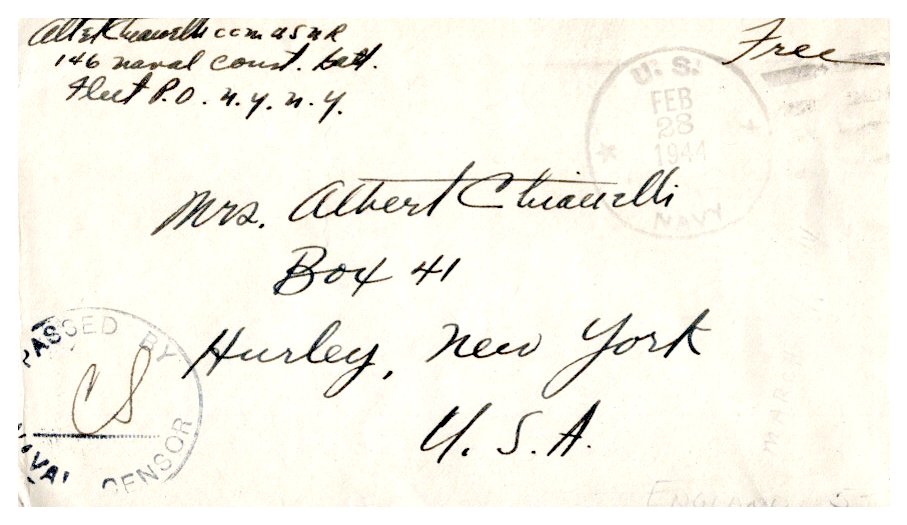 Albert Chianelli CCM USNR
146 Naval Const. Batt.
Fleet P.O. N.Y. N.Y.
Free
U. S.
FEB
28
1944
NAVY
Mrs. Albert Chianelli
Box 41
Hurley, New York
U. S. A.
PASSED BY
CS
NAVAL CENSOR
MARCH
ENGLAND